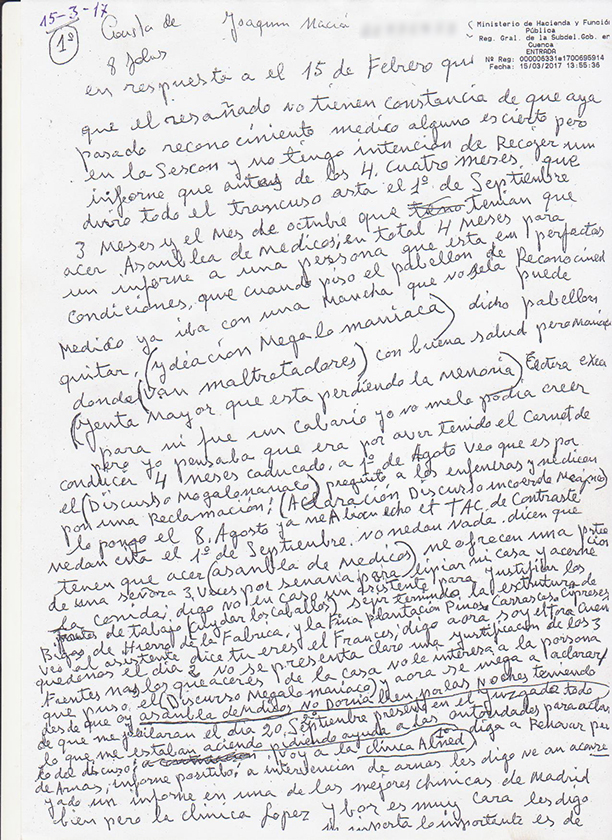 15-3-17
1º
Carta de Joaquin Maciá
8 folios
Ministerio de Hacienda y Función
Pública
Reg. Gral. de la Subdel.Gob. en
Cuenca
ENTRADA
Nº Reg: 000006331e1700695914
Fecha: 15/03/2017 13:55:36
en respuesta a el 15 de Febrero que
que el resañado no tienen constancia de que aya
pasado reconocimiento medico alguno es cierto pero
en la Sescon y no tengo intencion de Recojer un
informe que antes de los 4, cuatro meses, que
duro todo el trascurso asta el 1º de Septiembre
3 meses y el mes de octubre que tenian que
acer Asanblea de Medicos, en total 4 Meses para
un informe a una persona que esta en perfectas
condiciones, que cuando piso el pabellon de Reconocimed
Medico ya iva con una Mancha que no sela puede
quitar, (ydeación Megalomaniaca) dicho pabellon
donde (van maltratadores) con buena salud pero
(Yenta Mayor que esta perdiendo la Memoria)
para mi fue un calbario yo no melo podia creer
pero yo pensaba que era por aver tenido el Carnet de
conducir 4 meses caducado, a 1º de Agoto veo que es por
el (Discurso Megalomaniaco) pregunto, a las enfermeras y me dicen
por una Reclamación; (Aclaración Discurso
lo pongo el 8, Agosto ya me Abian echo et TAC de Contraste
nedan esta el 1º de Septiembre. no nedan nada. dicen que
tenen que acer (asanbla de Medicos) me ofrecen una
de una sevora 3, Veces por senana para lipiar mi casa y acerme
La comida; digo no en caso un asistente para justificar los
frentes de trabajo (ayudar los Caballos) sejir ternindo la estrutura de
Bigas de Hierro de la Fabrica, y la Finca plantación Pinos Carrascos Cypreses
vea al asistente dice tu eres el Frances; digo aora soy el
quedenos el dia 2, no se presenta claro una justificación de los 3
Fuentes nas los queaceres de la casa no le interesa a la porsona
que puso, el (Discurso Megalo maniaco) y aora se niega a aclarar
desde que oy asanbla de Nidos no Dornia Bien por las Noches teniendo
de que me jubilaran el dia 20, Septienbre presente en el Juzgado todo
lo que, me estaban aciendo pidiendo ayuda a las autoridades para aclarar
to del discurso; a 1º voy a a la clinica Almed) diga a Renovar per
de Arnas, informe positibo; a intervencion de arnas les digo ve an
yado un informe en una de las mejores chinicas de Madrid
bien pero la clinica Lopez y bor es muy cara les digo
importa lo importante es de